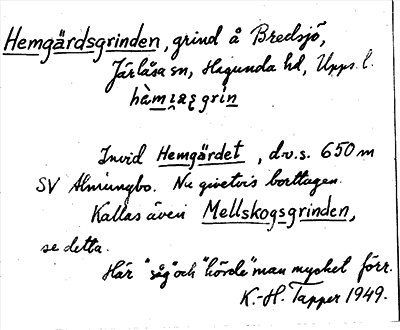 Hemgärdsgrinden, grind å Bredsjö,
Järlåsa sn, Hagunda hd, Upps. l.
Invid Hemgärdet, d.v.s. 650 m
SV Almungbo. Nu givetvis borttagen.
Kallas även Mellskogsgrinden,
se detta.
Här "såg" och "hörde" man mycket förr.
K.-H. Tapper 1949.